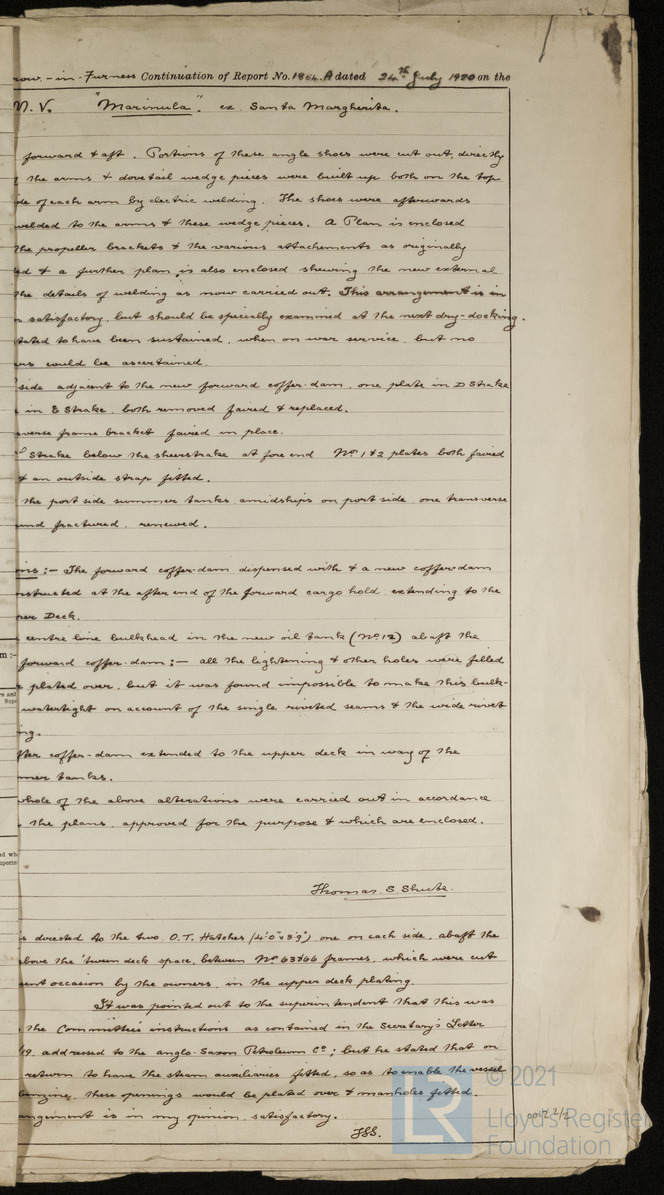 row - in - Furness Continuation of Report No. 1864. A dated 24th July 1920 on the
N. V. "Marinula". ex Santa Margherita.
forward & aft. Portions of these angle shoes were cut out, directly
the arms & dovetail wedge pieces were built up both on the top
de of each arm by electric welding. The shoes were afterwards
welded to the arms & these wedge pieces. A Plan is enclosed
the propeller brackets & the various attachements as originally
ed & a further plan is also enclosed shewing the new external
the details of welding as now carried out. This arrangement is in
n satisfactory, but should be specially examined at the next dry-docking.
tated to have been sustained, when on war service, but no
rs could be ascertained.
side adjacent to the new forward coffer-dam, one plate in D Strake
in E Strake, both removed faired & replaced.
verse frame bracket faired in place.
Strake below the sheerstrake at fore end No 1 & 2 plates both faired
& an outside strap fitted.
the port side summer tanks amidships on port side one transverse
und fractured, renewed.
ns :- The forward coffer-dam dispensed with & a new cofferdam
nstructed at the after end of the forward cargo hold extending to the
per Deck.
centre line bulkhead in the new oil tank (No 12) abaft the
m :-
forward coffer-dam :- all the lightening & other holes were filled
plated over, but it was found impossible to make this bulk-
re and
watertight on account of the single riveted seams & the wide rivet
ng.
fter coffer-dam extended to the upper deck in way of the
mer tanks.
whole of the above alterations were carried out in accordance
the plans, approved for the purpose & which are enclosed.
ed wh
Thomas. S. Shute.
s directed to the two O.T. Hatches (4'0" x 3'9") one on each side, abaft the
above the 'tween deck space, between No 63 & 66 frames, which were cut
ent occasion by the owners, in the upper deck plating.
It was pointed out to the superintendent that this was
the Committee's instructions as contained in the Secretary's Letter
19. addressed to the Anglo-Saxon Petroleum Co; but he stated that on
return to have the steam auxiliaries fitted, so as to enable the vessel
benzine, these openings would be plated over & manholes fitted.
angement is in my opinion, satisfactory.
TSS.
0017 2/2
© 2021
LR
Lloyd's Register
Foundation